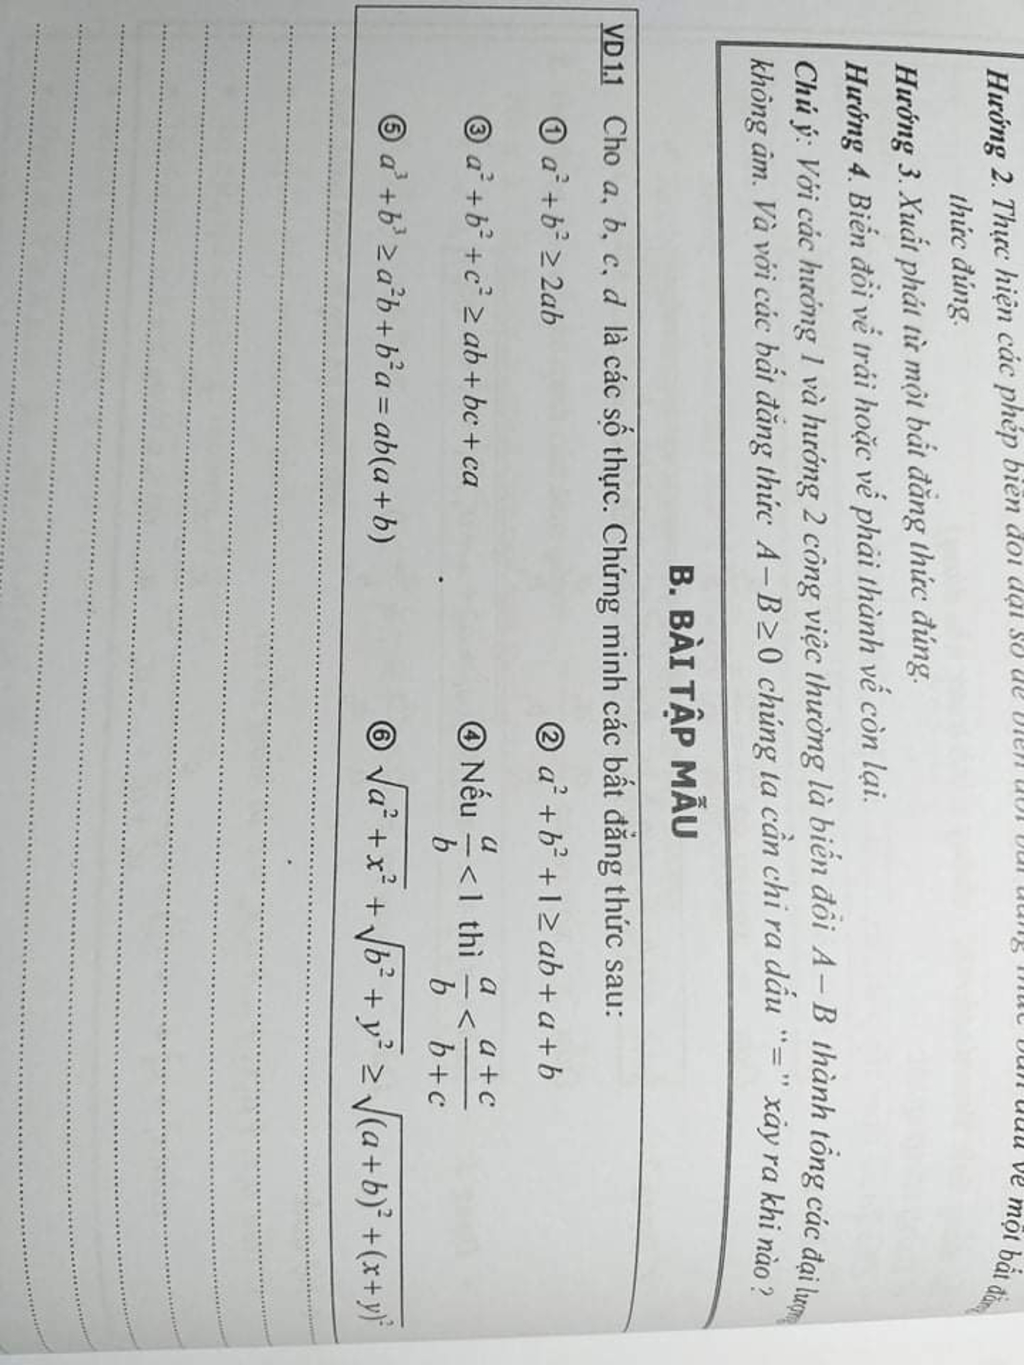 Hướng 2. Thực hiện các phép biến đổi đại số để biến đổi bất đẳng thức ban đầu về một bất đẳng
thức đúng.
Hướng 3. Xuất phát từ một bất đẳng thức đúng.
Hướng 4. Biến đổi vế trái hoặc vế phải thành vế còn lại.
Chú ý: Với các hướng 1 và hướng 2 công việc thường là biến đổi A − B thành tổng các đại lượng
không âm. Và với các bất đẳng thức A − B ≥ 0 chúng ta cần chỉ ra dấu "=" xảy ra khi nào?
B. BÀI TẬP MẪU
VD 1.1 Cho a, b, c, d là các số thực. Chứng minh các bất đẳng thức sau:
① a² + b² ≥ 2ab ② a² + b² + 1 ≥ ab + a + b
③ a² + b² + c² ≥ ab + bc + ca ④ Nếu a/b < 1 thì a/b < (a+c)/(b+c)
⑤ a³ + b³ ≥ a²b + b²a = ab(a + b) ⑥ √(a² + x²) + √(b² + y²) ≥ √((a + b)² + (x + y)²)